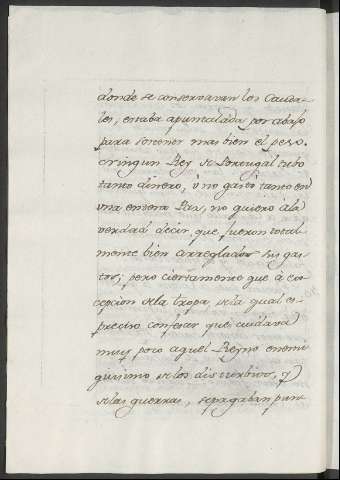 donde se conservavan los Cauda-
les, estaba apuntalada por abajo
para sostener mas bien el peso.
Ningun Rey de Portugal tubo
tanto dinero, ò no gastò tanto en
una entera Paz, no quiero à la
verdad decir, que fueron total-
mente bien arreglados sus gas-
tos; pero ciertamente que à ex-
cepcion de la tropa de la qual es
preciso confesar que cuidava
muy poco aquel Reyno enemi-
guisimo de los disturbios, y
de las guerras, se pagaban pun-